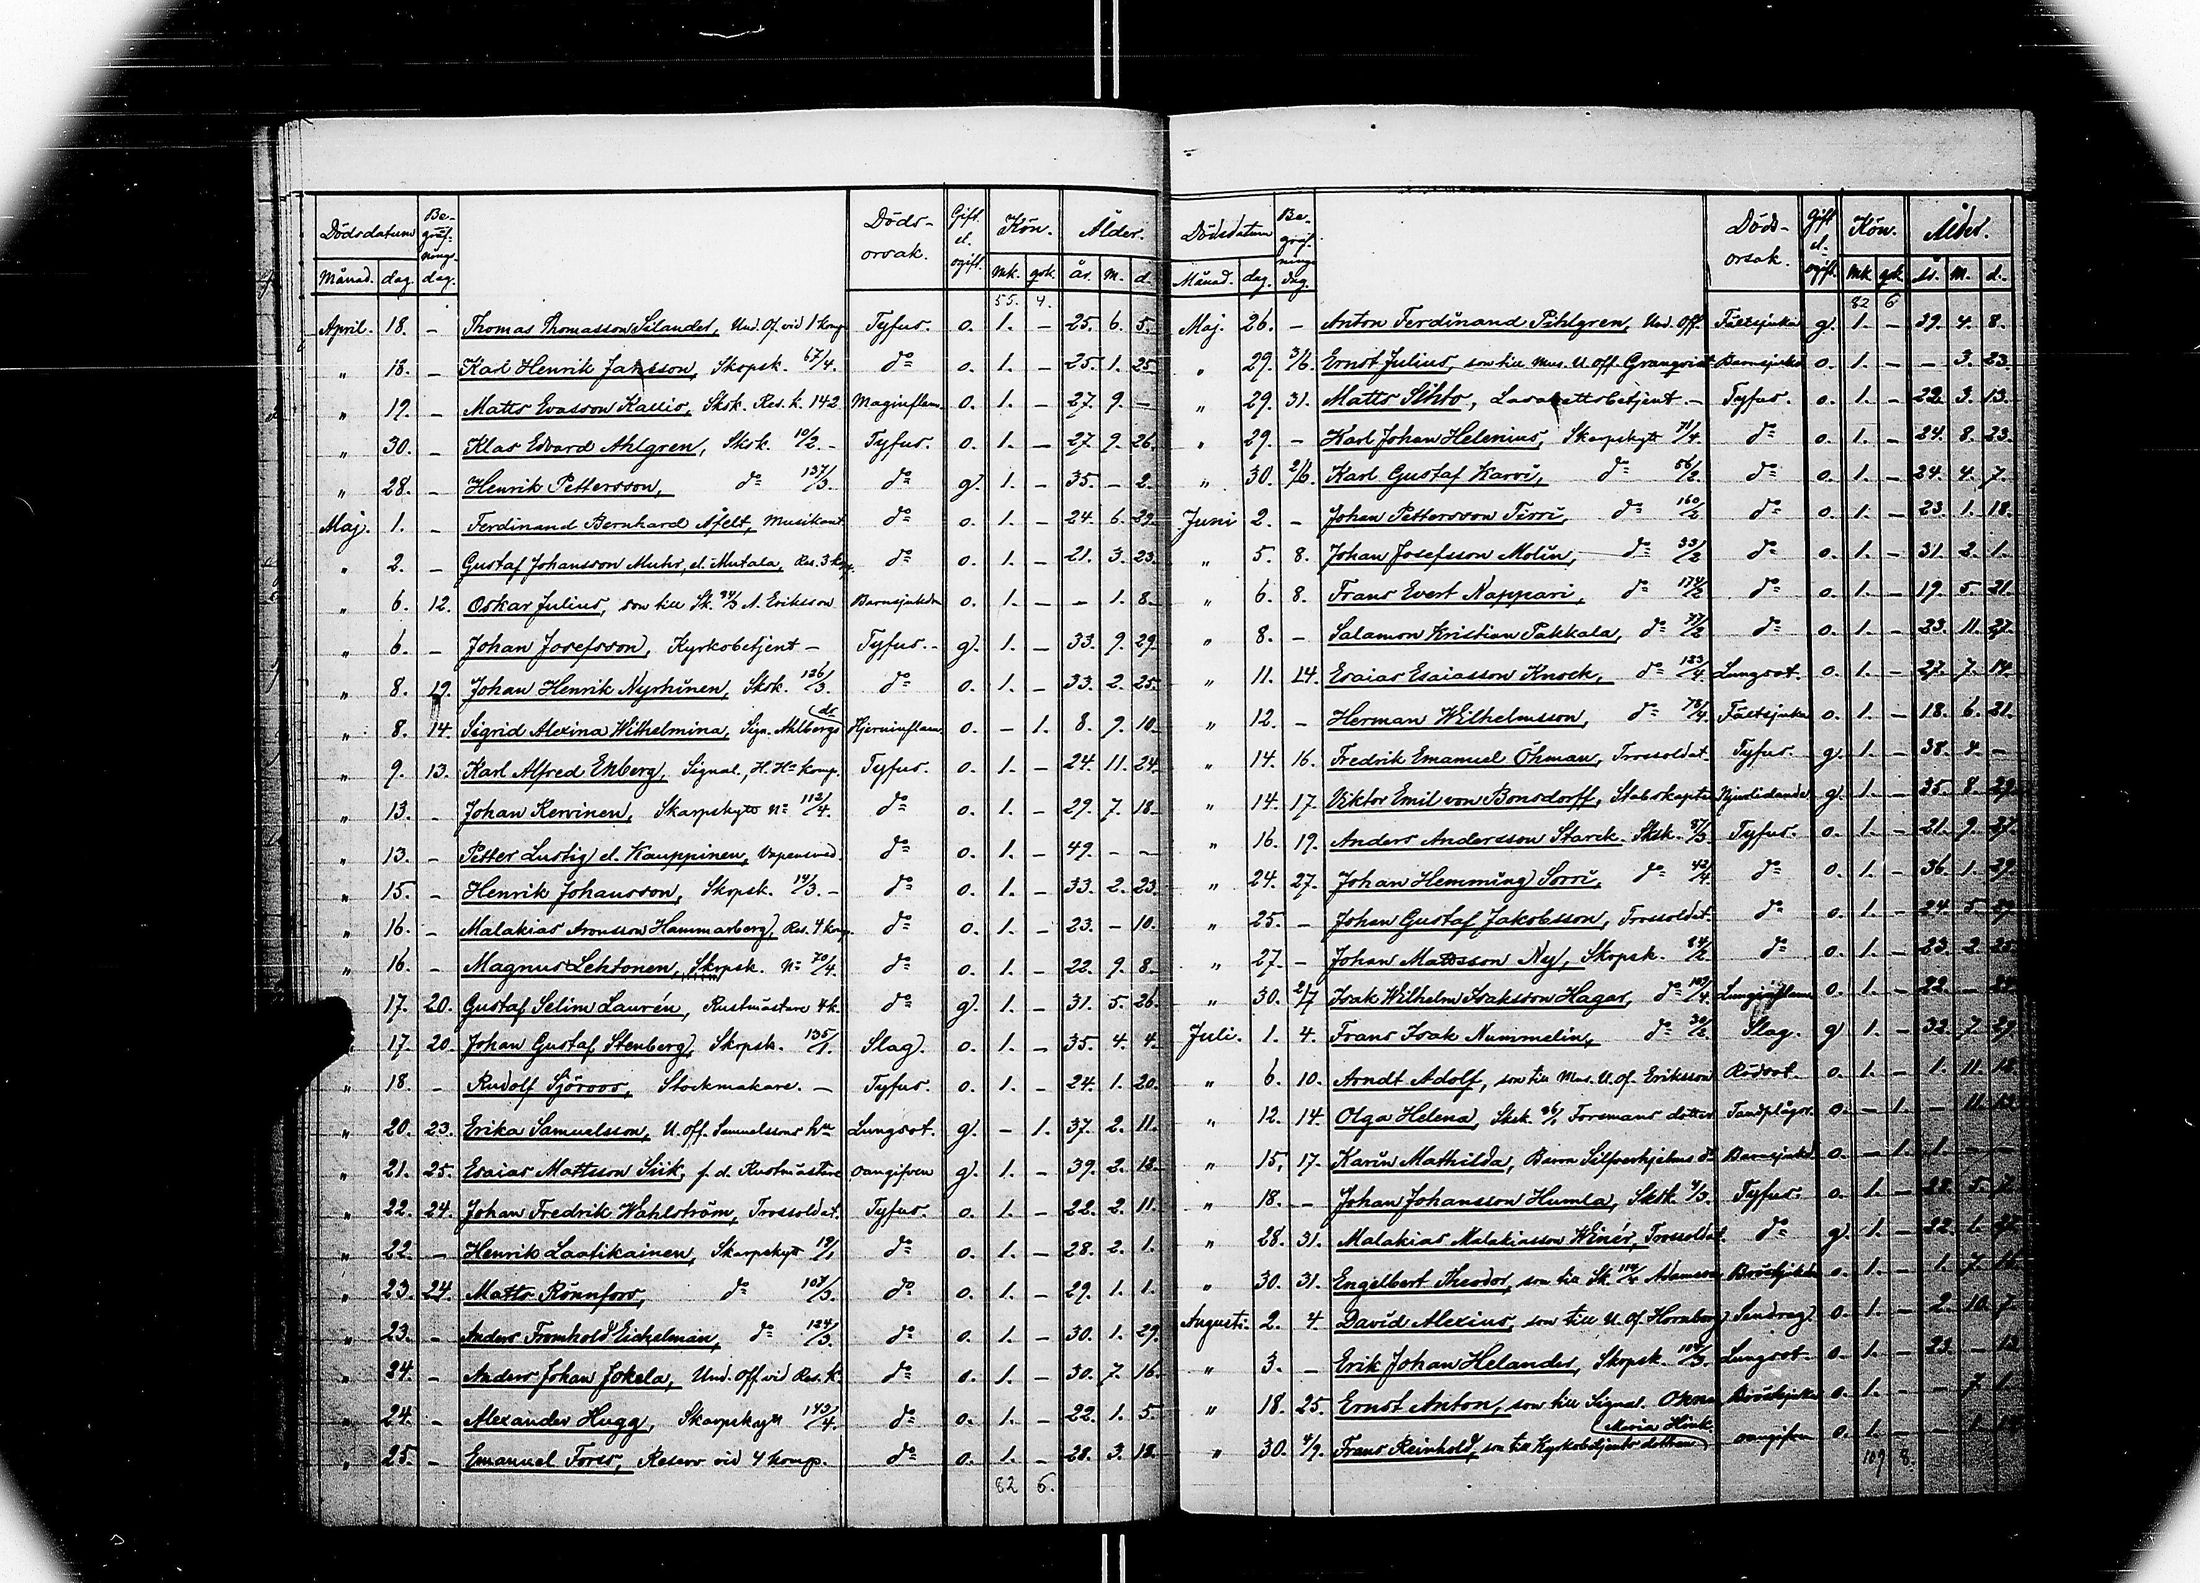 Dödsdatum Be-gräf-nings-dag. Döds-orsak. Gift el. ogift. Kön. Ålder.
Månad. dag. mk. qvk. år. m. d.
55. 4.
April. 18. – Thomas Thomasson Silander, Und. Of. vid 1 komp Tyfus. o. 1. – 25. 6. 5.
" 18. – Karl Henrik Jansson, Skspsk. 67/4. do o. 1. – 25. 1. 25.
" 19. – Matts Evasson Kallio, Sksk. Res. k. 142 Maginflam. o. 1. – 27. 9. –
" 30. – Klas Edvard Ahlgren, Sksk. 10/2. – Tyfus. o. 1. – 27 9. 26.
" 28. – Henrik Pettersson, do 137/3. do g. 1. – 35. – 2.
Maj. 1. – Ferdinand Bernhard Åfelt, Musikant do o. 1. – 24. 6. 29.
" 2. – Gustaf Johansson Muhr, el. Mutala, Res. 3 komp. do o. 1. – 21. 3. 23.
" 6. 12. Oskar Julius, son till Sk. 94/3 A. Eriksson Barnsjukdom o. 1. – – 1. 8.
" 6. – Johan Josefsson, Kyrkobetjent – Tyfus. g. 1. – 33. 9. 29.
" 8. 19. Johan Henrik Nyrhinen, Sksk. 126/3. do o. 1. – 33. 2. 25.
" 8. 14. Sigrid Alexina Wilhelmina, Sign. Ahlbergs dr Hjerninflam. o. – 1. 8. 9. 10.
" 9. 13. Karl Alfred Ekberg, Signal., H. Hs komp. Tyfus. o. 1. – 24. 11. 24.
" 13. – Johan Kervinen, Skarpskytt No 112/4. do o. 1. – 29. 7. 18.
" 13. – Petter Lustig el. Kauppinen, Vapensmed. do o. 1. – 49. – –
" 15. – Henrik Johansson, Skspsk. 14/3. – do o. 1. – 33. 2. 23.
" 16. – Malakias Aronsson Hammarberg, Res. 4 komp. do o. 1. – 23. – 10.
" 16. – Magnus Lehtonen, Skspsk. No 70/4. do o. 1. – 22. 9. 8.
" 17. 20. Gustaf Selim Laurén, Rustmästare 4 k. do g. 1. – 31. 5. 26.
17. 20. Johan Gustaf Stenberg, Skspsk. 135/1. Slag. o. 1. – 35. 4. 4.
" 18. – Rudolf Sjöroos, Stockmakare. – Tyfus. o. 1. – 24. 1. 20.
" 20. 23. Erika Samuelsson, U. off. Samuelssons hu Lungsot. g. – 1. 37. 2. 11.
" 21. 25. Esaias Mattsson Siik, f. d. Rustmästare oangifven g. 1. – 39. 2. 13.
" 22. 24. Johan Fredrik Wahlström, Trossoldat. Tyfus. o. 1. – 22. 2. 11.
" 22. – Henrik Laatikainen, Skarpskytt 19/1 do o. 1. – 28. 2. 1.
" 23. 24. Matts Rönnfors, do 107/3. do o. 1. – 29. 1. 1.
" 23. – Anders Fromhold Eickelman, do 124/3. do o. 1. – 30. 1. 29.
" 24. – Anders Johan Jokela, Und. Off. vid Res. k. do o. 1. – 30. 7. 16.
" 24. – Alexander Hugg, Skarpskytt 143/4. do o. 1. – 22. 1. 5.
" 25. – Emanuel Forss, Reserv vid 4 komp. do o. 1. – 28. 3. 18.
82 6.
Dödsdatum Be-gräf-nings-dag. Döds-orsak. Gift el. ogift. Kön. Ålder.
Månad. dag. mk. qvk. år. m. d.
82 6
Maj. 26. – Anton Ferdinand Pihlgren, Und. Off. Fältsjuka g. 1. – 29. 4. 8.
" 29. 3/6. Ernst Julius, son till Mus. U. off. Granqvist Barnsjukd. o. 1. – – 3. 23.
" 29. 31. Matts Sihto, Lasarettsbetjent – Tyfus. o. 1. – 22. 3. 13.
" 29. – Karl Johan Helenius, Skarpskytt 71/4. do o. 1. – 24. 8. 23.
" 30. 2/6. Karl Gustaf Karvi, do 56/2. do o. 1. – 24. 4. 7.
Juni 2. – Johan Pettersson Tirri, do 160/2 do o. 1. – 23. 1. 18.
" 5. 8. Johan Josefsson Molin, do 33/2 do o. 1. – 31. 2. 1.
" 6. 8. Frans Evert Nappari, do 174/2 do o. 1. – 19. 5. 21.
" 8. – Salamon Kristian Pakkala, do 77/2 do o. 1. – 23. 11. 27.
" 11. 14. Esaias Esaiasson Knock, do 123/4 Lungsot. o. 1. – 27. 7. 14.
" 12. – Herman Wilhelmsson, do 78/4. Fältsjuka o. 1. – 18. 6. 21.
" 14. 16. Fredrik Emanuel Öhman, Trossoldat Tyfus. g. 1. – 38. 4. –
" 14. 17. Viktor Emil von Bonsdorff, Stabskapten Njurlidande g. 1. – 35. 8. 29.
" 16. 19. Anders Andersson Starck, Sksk. 87/3. Tyfus. o. 1. – 21. 9. 27.
" 24. 27. Johan Hemming Sorri, do 42/4. do o. 1. – 36. 1. 29.
" 25. – Johan Gustaf Jakobsson, Trossoldat. do o. 1. – 24. 5.
" 27. – Johan Mattsson Ny, Skspsk. 84/2. do o. 1. – 23. 2. 25.
" 30. 2/7 Isak Wilhelm Isaksson Hagar, do 109/4. Lunginflam. o. 1. – 22. –
Juli. 1. 4. Frans Isak Nummelin, do 30/2. Slag. g 1. – 32. 7. 29.
" 6. 10. Arndt Adolf, son till Mus. U. of. Eriksson Rödsot. o. 1. – 1. 11. 18.
" 12. 14. Olga Helena, Sksk. 96/1 Forsmans dotter Tandplågor. o. – 1. – 11. 13.
" 15. 17. Karin Mathilda, Baron Silfverhjelms dr Barnsjukd. o. – 1. 1. – –
" 18. – Johan Johansson Humla, Sksk. 4/3. Tyfus. o. 1. – 22. 5. 7.
" 28. 31. Malakias Malakiasson Winér, Trossoldat. do g. 1. – 22. 1.
" 30. 31. Engelbert Theodor, son till Sk. 114/4 Adamsson Bröstsjukd. o. 1. – 1. 7.
Augusti. 2. 4. David Alexius, son till U. of. Hornborg Sendrag. o. 1. – 2. 10. 7.
" 3. – Erik Johan Helander, Skspsk. 104/3. Lungsot. o. 1. – 23. – 13
" 18. 25. Ernst Anton, son till Signal. Bröstsjukd. o. 1. – – 7. 1.
" 30. 4/9. Frans Reinhold, son till Kyrkobetjents dottren Maria Hink. oangifven o. 1. – – 1.
109 8.